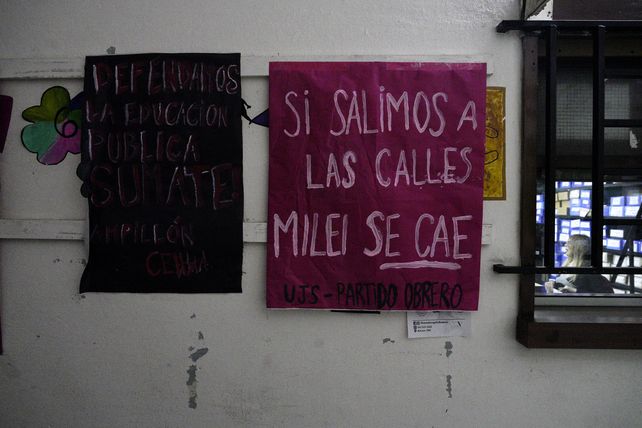 DEFENDAMOS
LA EDUCACIÓN
PUBLICA
SUMATE!
AMPILLÓN
SI SALIMOS A
LAS CALLES
MILEI SE CAE
UJS - PARTIDO OBRERO